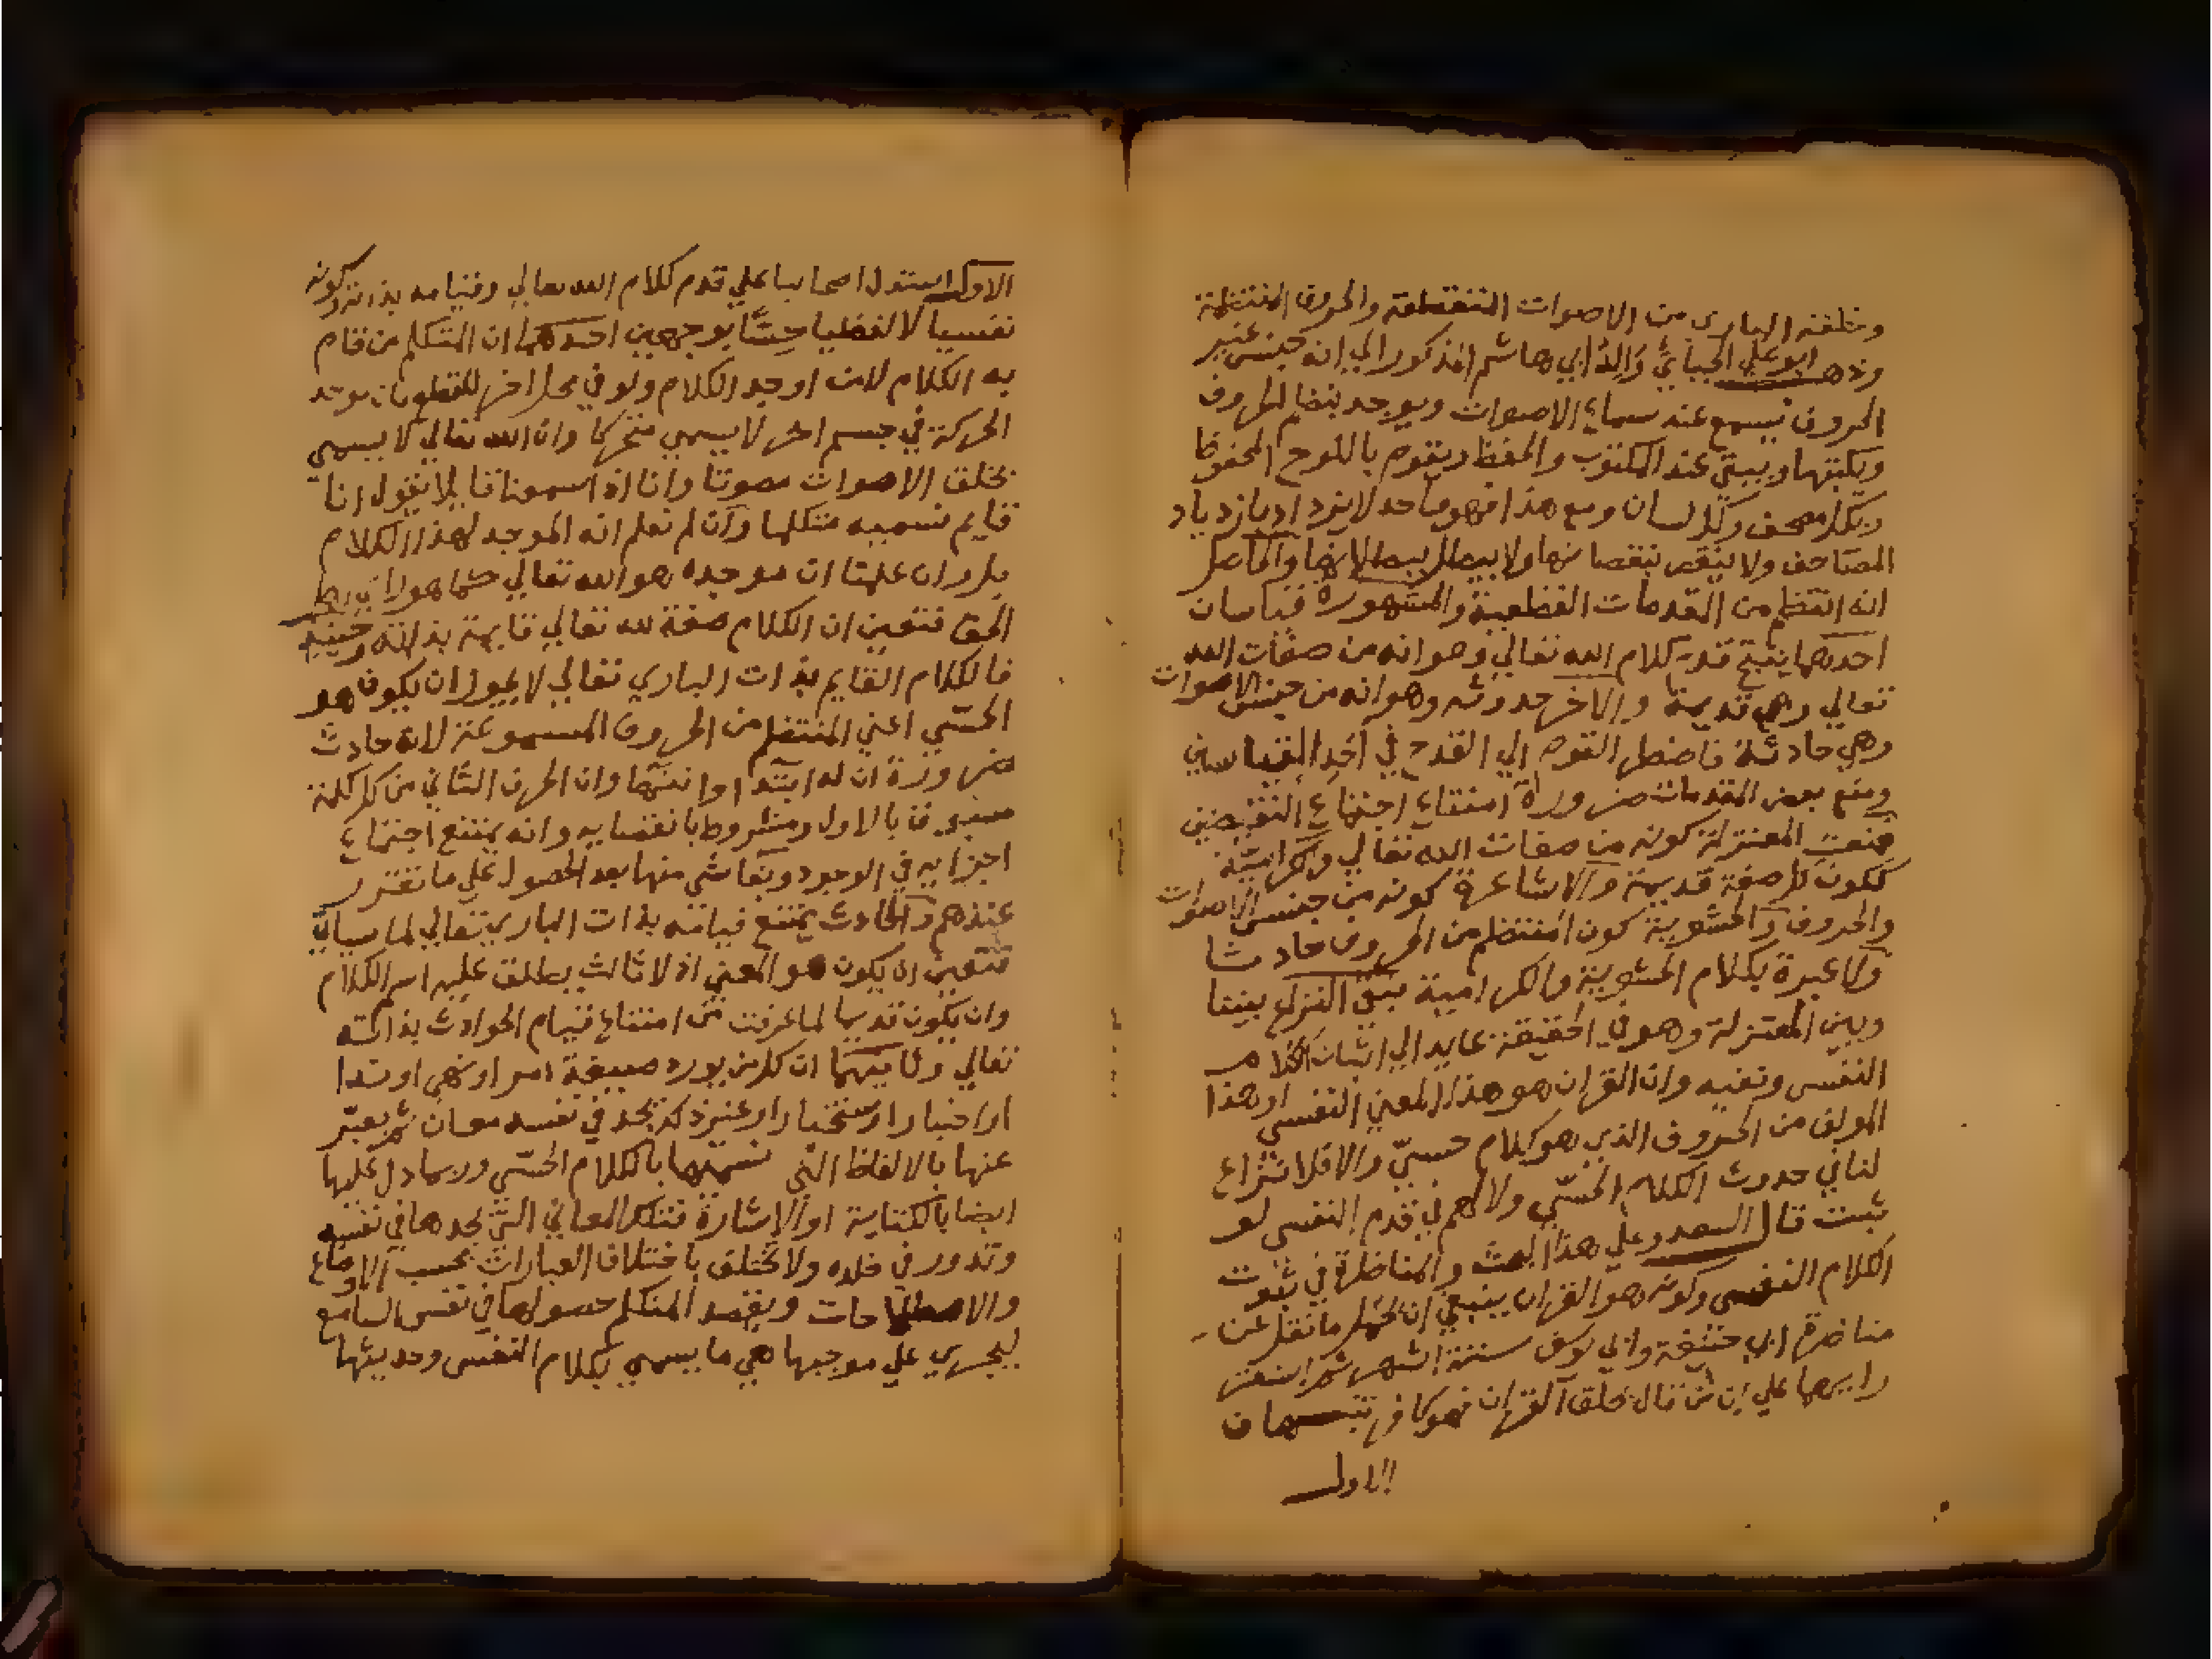 وخلقه الباري من الاصوات المتقطعة والحروف المنتظمة
وذهب ابو علي الجبائي والد ابي هاشم المذكور الي انه جنس غير
الحروف يسمع عند سماع الاصوات ويوجد بنظم الحروف
وبكتبها ويبقي عند المكتوب والحفظ ويقوم باللوح المحفوظ
وبكل مصحف وكل لسان ومع هذا فهو واحد لا يزداد بازدياد
المصاحف ولا ينقص بنقصانها ولا يبطل ببطلانها والحاصل
انه انتظم من المقدمات القطعية والمشهورة قياسان
احدهما ينتج قدم كلام الله تعالي وهو انه من صفات الله
تعالي وهي قديمة والاخر حدوثه وهو انه من جنس الاصوات
وهي حادثة فاضطر القوم الي القدح في احد القياسين
ومنع بعض المقدمات ضرورة امتناع اجتماع النقيضين
فمنعت المعتزلة كونه من صفات الله تعالي والكرامية
ككون كل صفة قديمة والاشاعرة كونه من جنس الاصوات
والحروف والحشوية كون المنتظم من الحروف حادثا
ولا عبرة بكلام الحشوية والكرامية بقي النزاع بيننا
وبين المعتزلة وهو في الحقيقة عايد الي اثبات كلام
النفس ونفيه وان القران هو هذا المعني النفسي او هذا
المولف من الحروف الذي هو كلام حسيّ والا فلا نزاع
لنا في حدوث الكلام الحسّي ولا لهم في قدم النفسي لو
ثبت قال السعد وعلي هذا البحث والمناظرة في ثبوت
الكلام النفسي وكونه هو القران ينبغي ان يحمل ما نقل عن
مناظرة ابي حنيفة وابي يوسف ستة اشهر ثم استقر
رايهما علي ان من قال بخلق القران فهو كافر تنبيهان
الاول
الاول استدل اصحابنا علي قدم كلام الله تعالي وقيامه بذاته وكونه
نفسيا لا لفظيا حسّيّا بوجهين احدهما ان المتكلم من قام
به الكلام لا من اوجد الكلام ولو في محل اخر للقطع بان موجد
الحركة في جسم اخر لا يسمي متحركا وان الله تعالي لا يسمي
بخلق الاصوات مصوتا وانا اذا سمعنا قايلا يقول انا
قايم نسميه متكلما وان لم نعلم انه الموجد لهذا الكلام
بل وان علمنا ان موجده هو الله تعالي كما هو راي اهل
الحق فتعين ان الكلام صفة لله تعالي قايمة بذاته وحينئذ
فالكلام القايم بذات الباري تعالي لا يجوز ان يكون هو
الحسّي اعني المنتظم من الحروف المسموعة لانه حادث
ضرورة ان له ابتدا وانتهآ وان الحرف الثاني من كل كلمة
مسبوق بالاول ومشروط بانقضايه وانه يمتنع اجتماع
اجزايه في الوجود وبقآ شي منها بعد الحصول علي ما تقرر
عندهم والحادث يمتنع قيامه بذات الباري تعالي لما سياتي
فتعين ان يكون هو المعني اذ لا ثالث يطلق عليه اسم الكلام
وان يكون قديما لما عرفت من امتناع قيام الحوادث بذاته
تعالي وثانيهما ان كل من يورد صيغة امر او نهي او ندا
او اخبار او استخبار او غير ذلك يجد في نفسه معان ثم يعبّر
عنها بالالفاظ التي نسمّيها بالكلام الحسّي وربما دل عليها
ايضا بالكتابة او الاشارة فتلك المعاني التي يجدها في نفسه
وتدور في خلده ولا تختلف باختلاف العبارات بحسب الاوضاع
والاصطلاحات ويقصد المتكلم حصولها في نفس السامع
ليجري علي موجبها هي ما يسمي بكلام النفس وحديثها